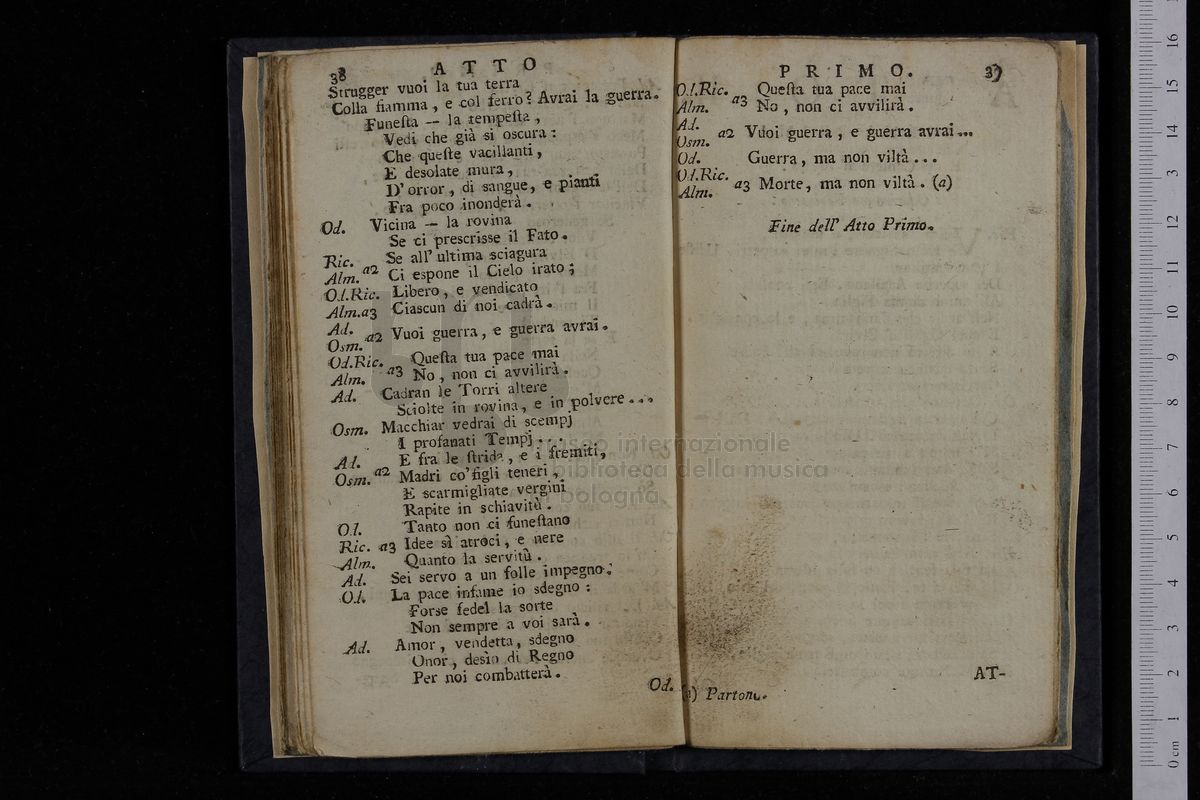 38
ATTO
Strugger vuoi la tua terra
Colla fiamma, e col ferro? Avrai la guerra.
Funeſta — la tempeſta,
Vedi che già si oscura:
Che queſte vacillanti,
E desolate mura,
D'orror, di sangue, e pianti
Fra poco inonderà.
Od. Vicina — la rovina
Se ci prescrisse il Fato.
Ric. Se all'ultima sciagura
Alm. a2 Ci espone il Cielo irato;
O.l.Ric. Libero, e vendicato
Alm.a3 Ciascun di noi cadrà.
Ad.
Osm. a2 Vuoi guerra, e guerra avrai.
Od.Ric. Queſta tua pace mai
Alm. a3 No, non ci avvilirà.
Ad. Cadran le Torri altere
Sciolte in rovina, e in polvere...
Osm. Macchiar vedrai di scempj
I profanati Tempj...
Ad. E fra le ſtrida, e i fremiti,
Osm. a2 Madri co'figli teneri,
E scarmigliate vergini
Rapite in schiavitù.
O.l. Tanto non ci funeſtano
Ric. a3 Idee sì atroci, e nere
Alm. Quanto la servitù.
Ad. Sei servo a un folle impegno;
O.l. La pace infame io sdegno:
Forse fedel la sorte
Non sempre a voi sarà.
Ad. Amor, vendetta, sdegno
Onor, desìo di Regno
Per noi combatterà.
Od.
PRIMO.
39
O.l.Ric. Queſta tua pace mai
Alm. a3 No, non ci avvilirà.
Ad.
Osm. a2 Vuoi guerra, e guerra avrai...
Od. Guerra, ma non viltà...
O.l.Ric.
Alm. a3 Morte, ma non viltà. (a)
Fine dell' Atto Primo.
AT-
(a) Partono.
museo internazionale
biblioteca della musica
bologna